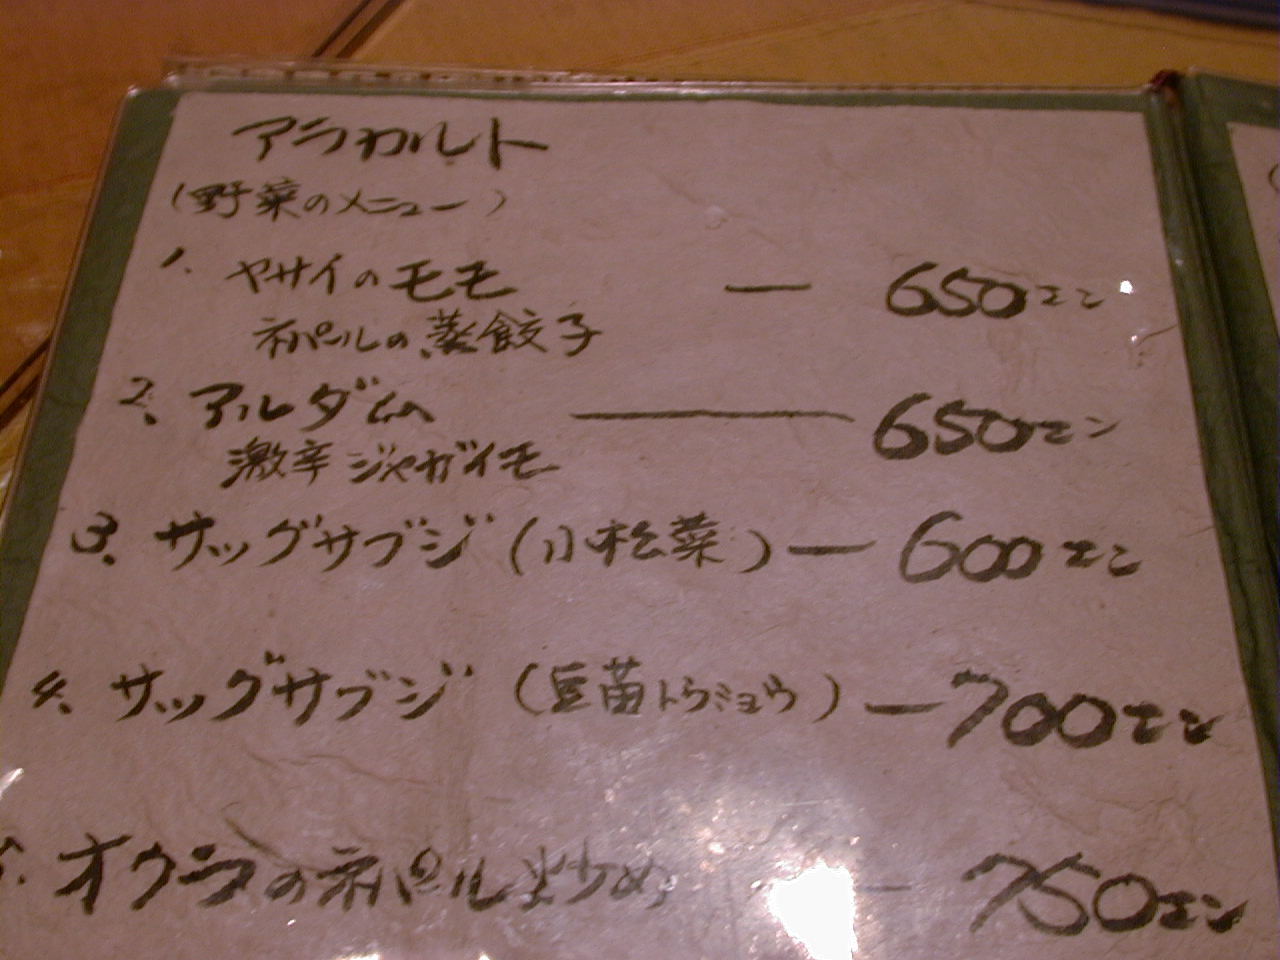 アラカルト
(野菜のメニュー)
1. ヤサイのモモ — 650エン
ネパールの蒸餃子
2. アルダム — 650エン
激辛ジャガイモ
3. サッグサブジ (小松菜) — 600エン
4. サッグサブジ (豆苗トウミョウ) — 700エン
5. オクラのネパール炒め — 750エン